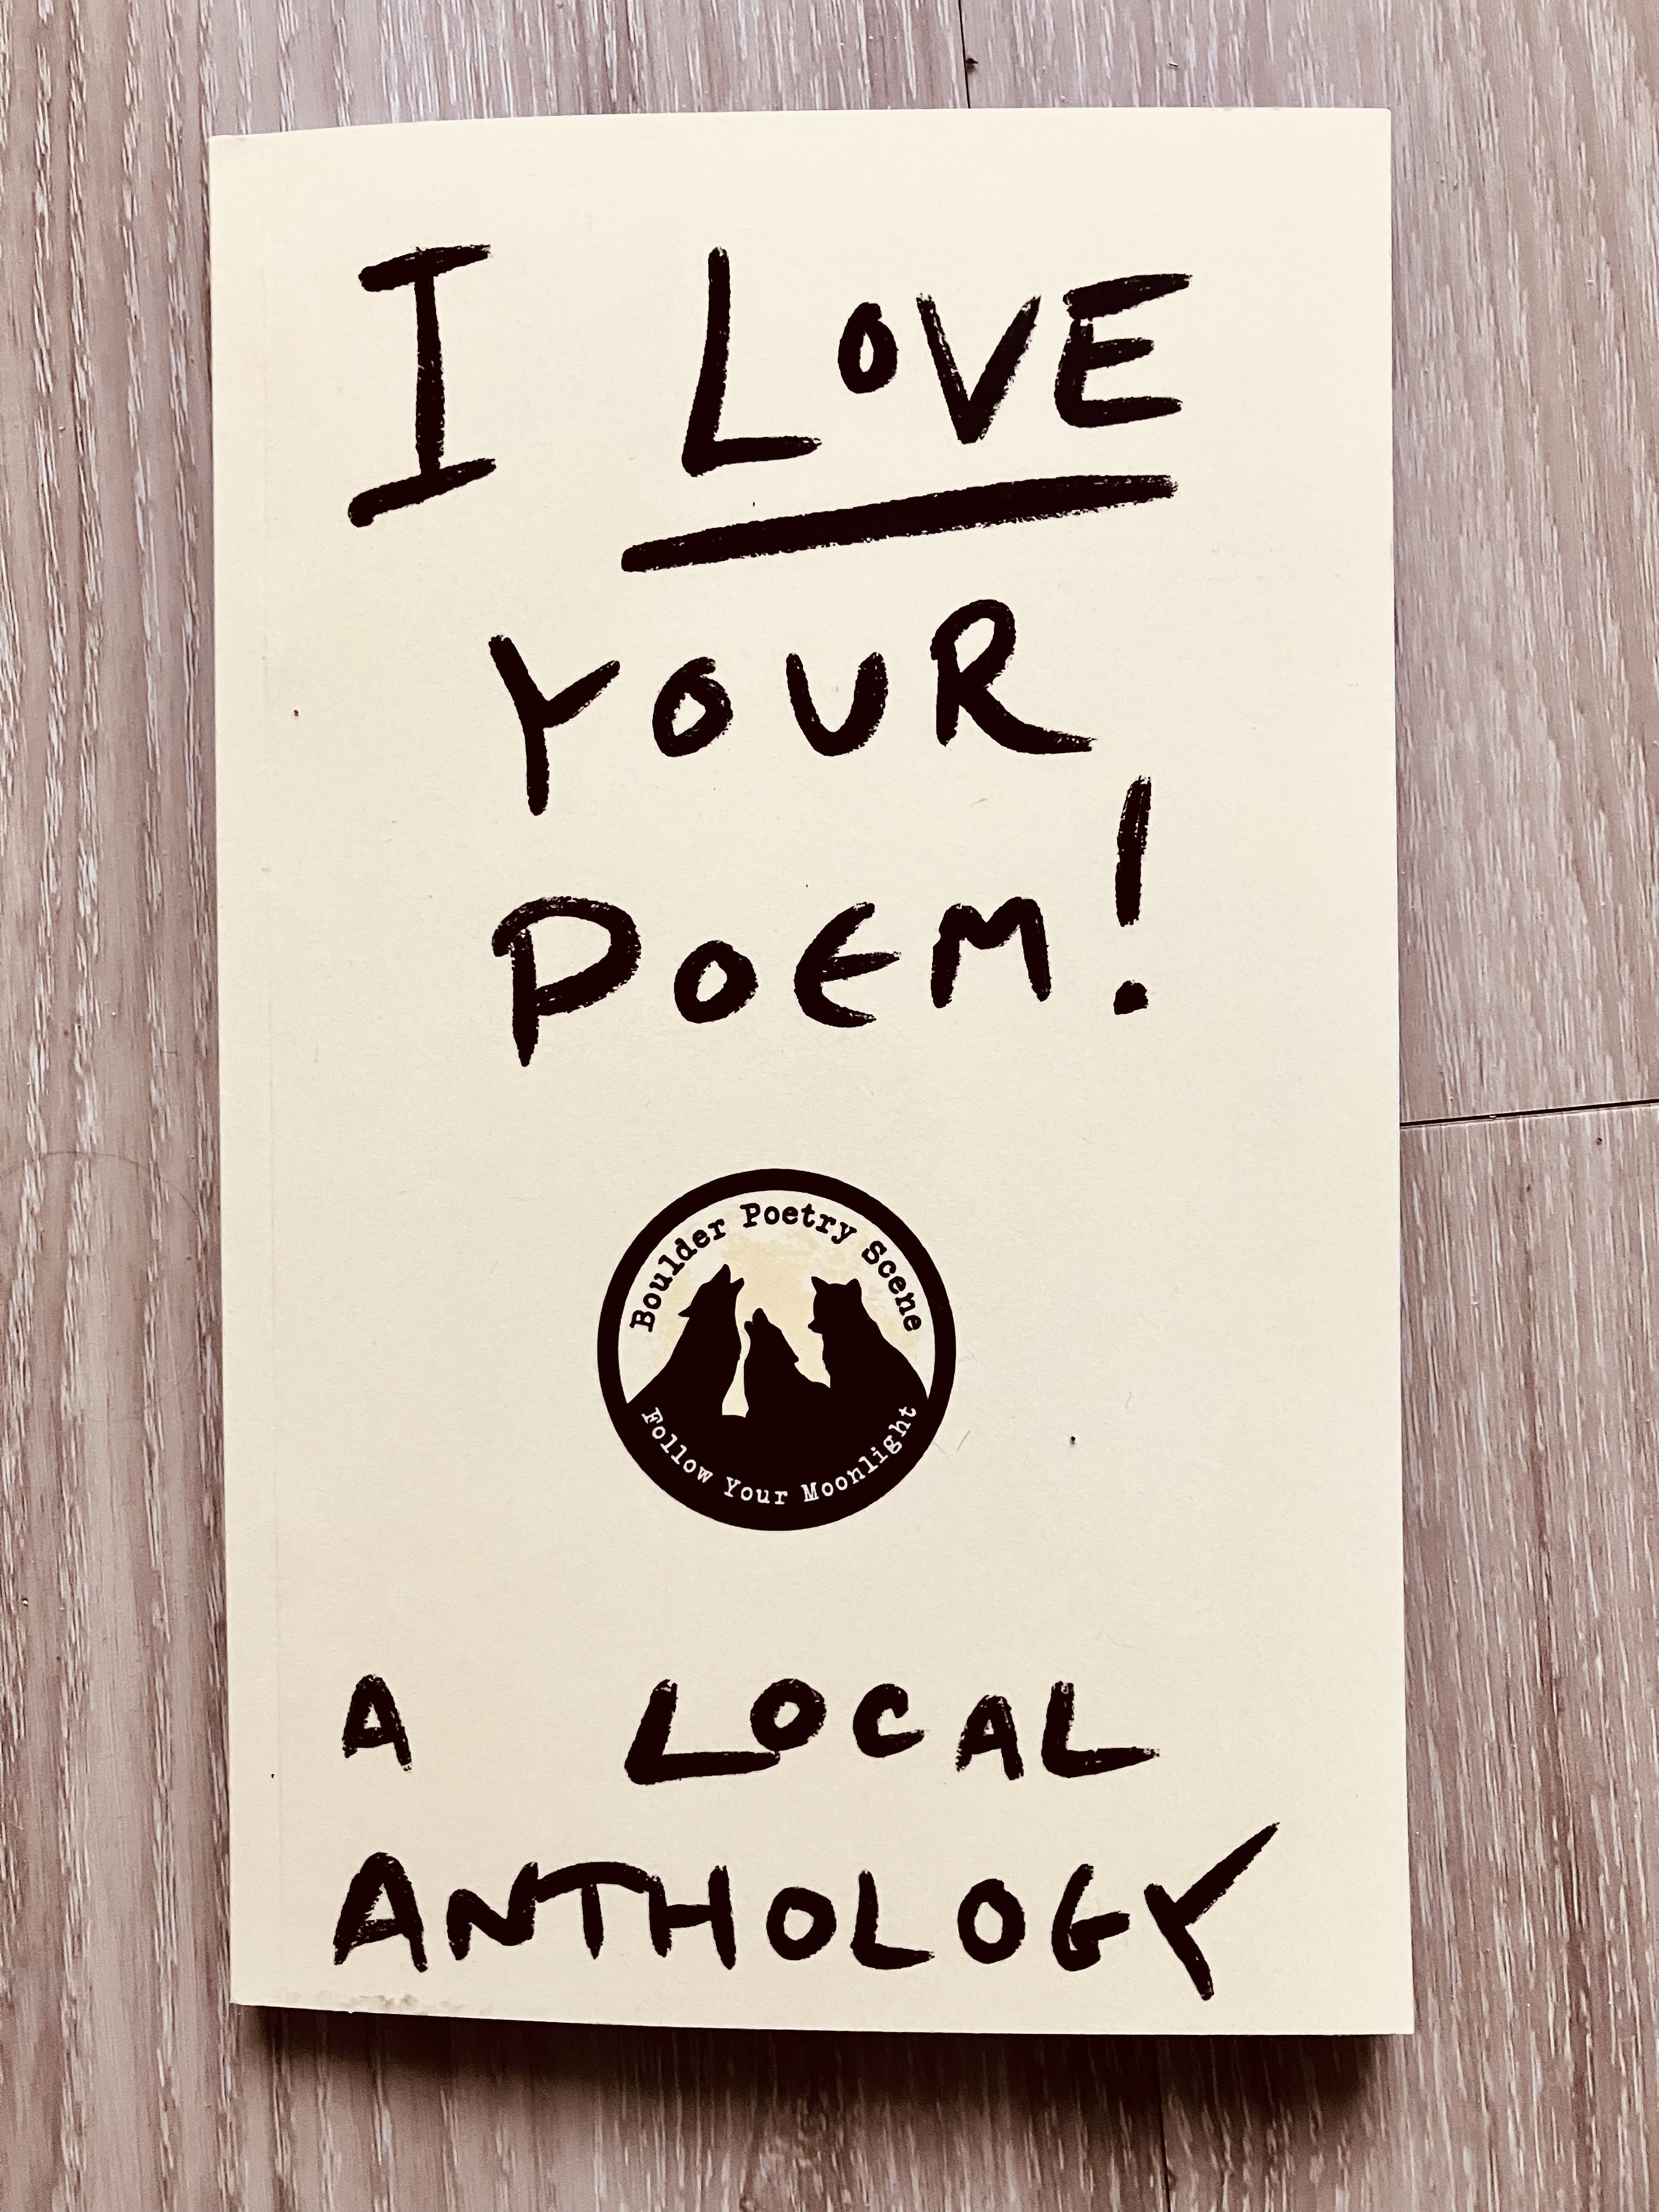 I LOVE
YOUR
POEM!
Boulder Poetry Scene
Follow Your Moonlight
A LOCAL
ANTHOLOGY